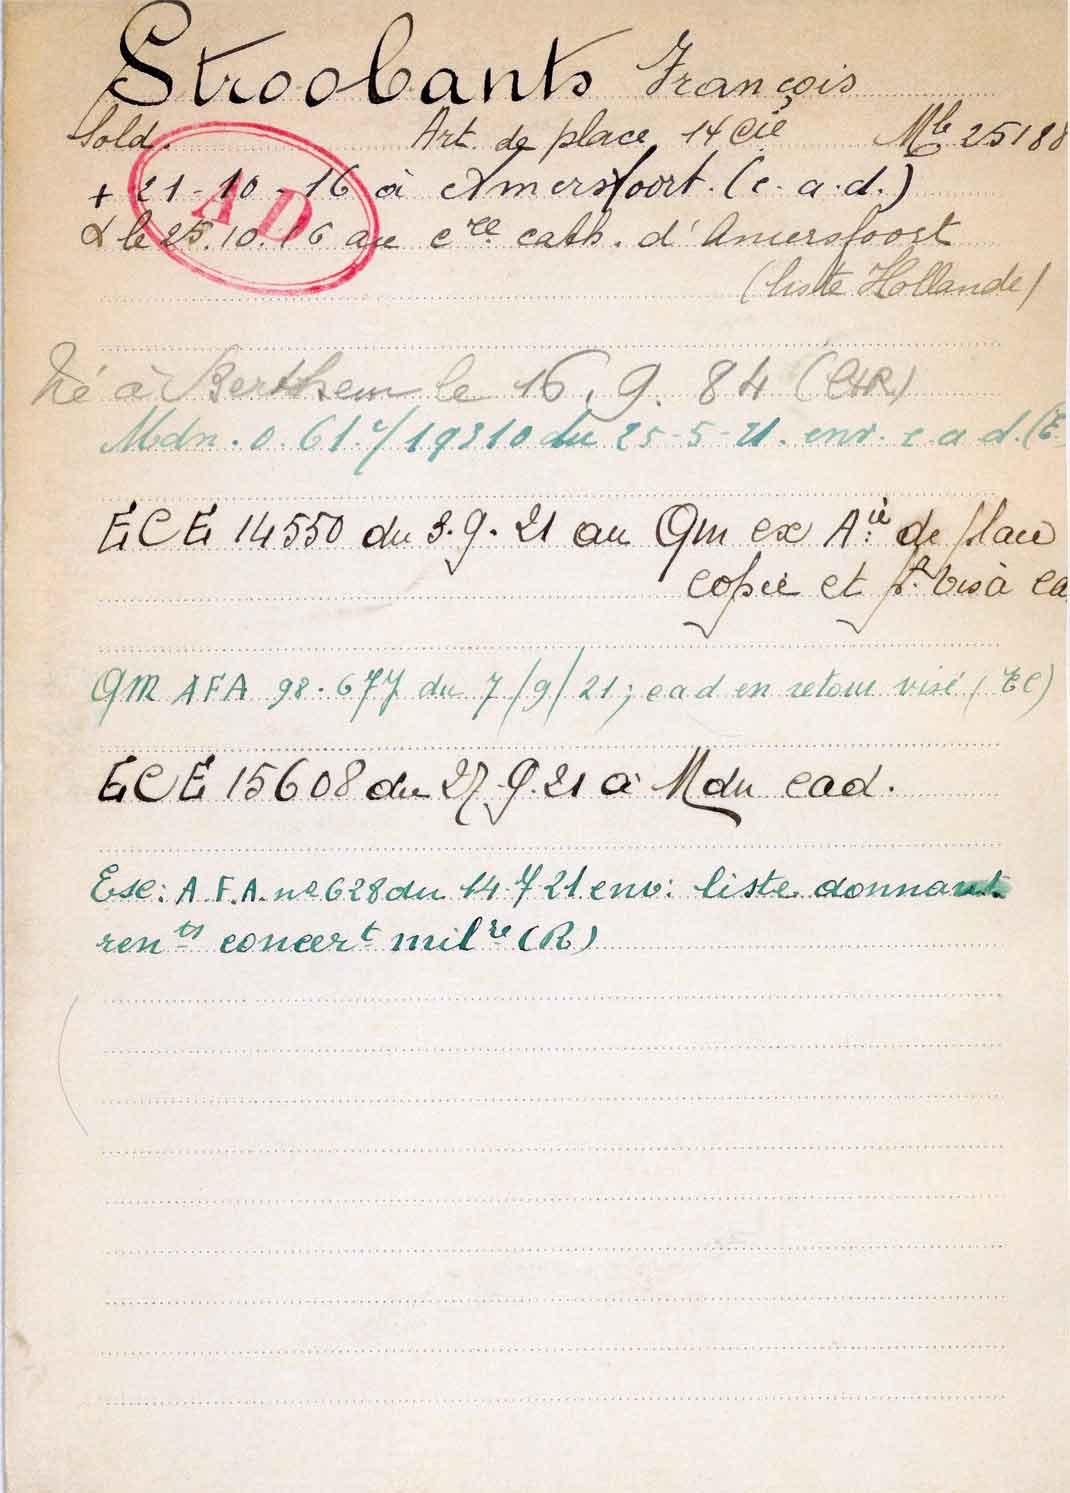 Stroobants François
Sold. Art. de place 14 Cie Mle 25188
+ 21-10-16 à Amersfoort. (c. a. d.)
AD
le 25.10.16 au cre cath. d'Amersfoort
(liste Hollande)
Né à Berthem le 16.9.84
Mdn. 0.61. /19310 du 25-5-21. env. c. a d. (E
ECE 14550 du 3.9.21 au QM ex Aie de place
copie et pr. visa ca
QM AFA 98.677 du 7/9/21; cad en retour visé (EC)
ECE 15608 du 27.9.21 à Mdn cad.
Esc: A.F.A. no 628 du 14-7-21 env: liste donnant
rents concert milre (R)